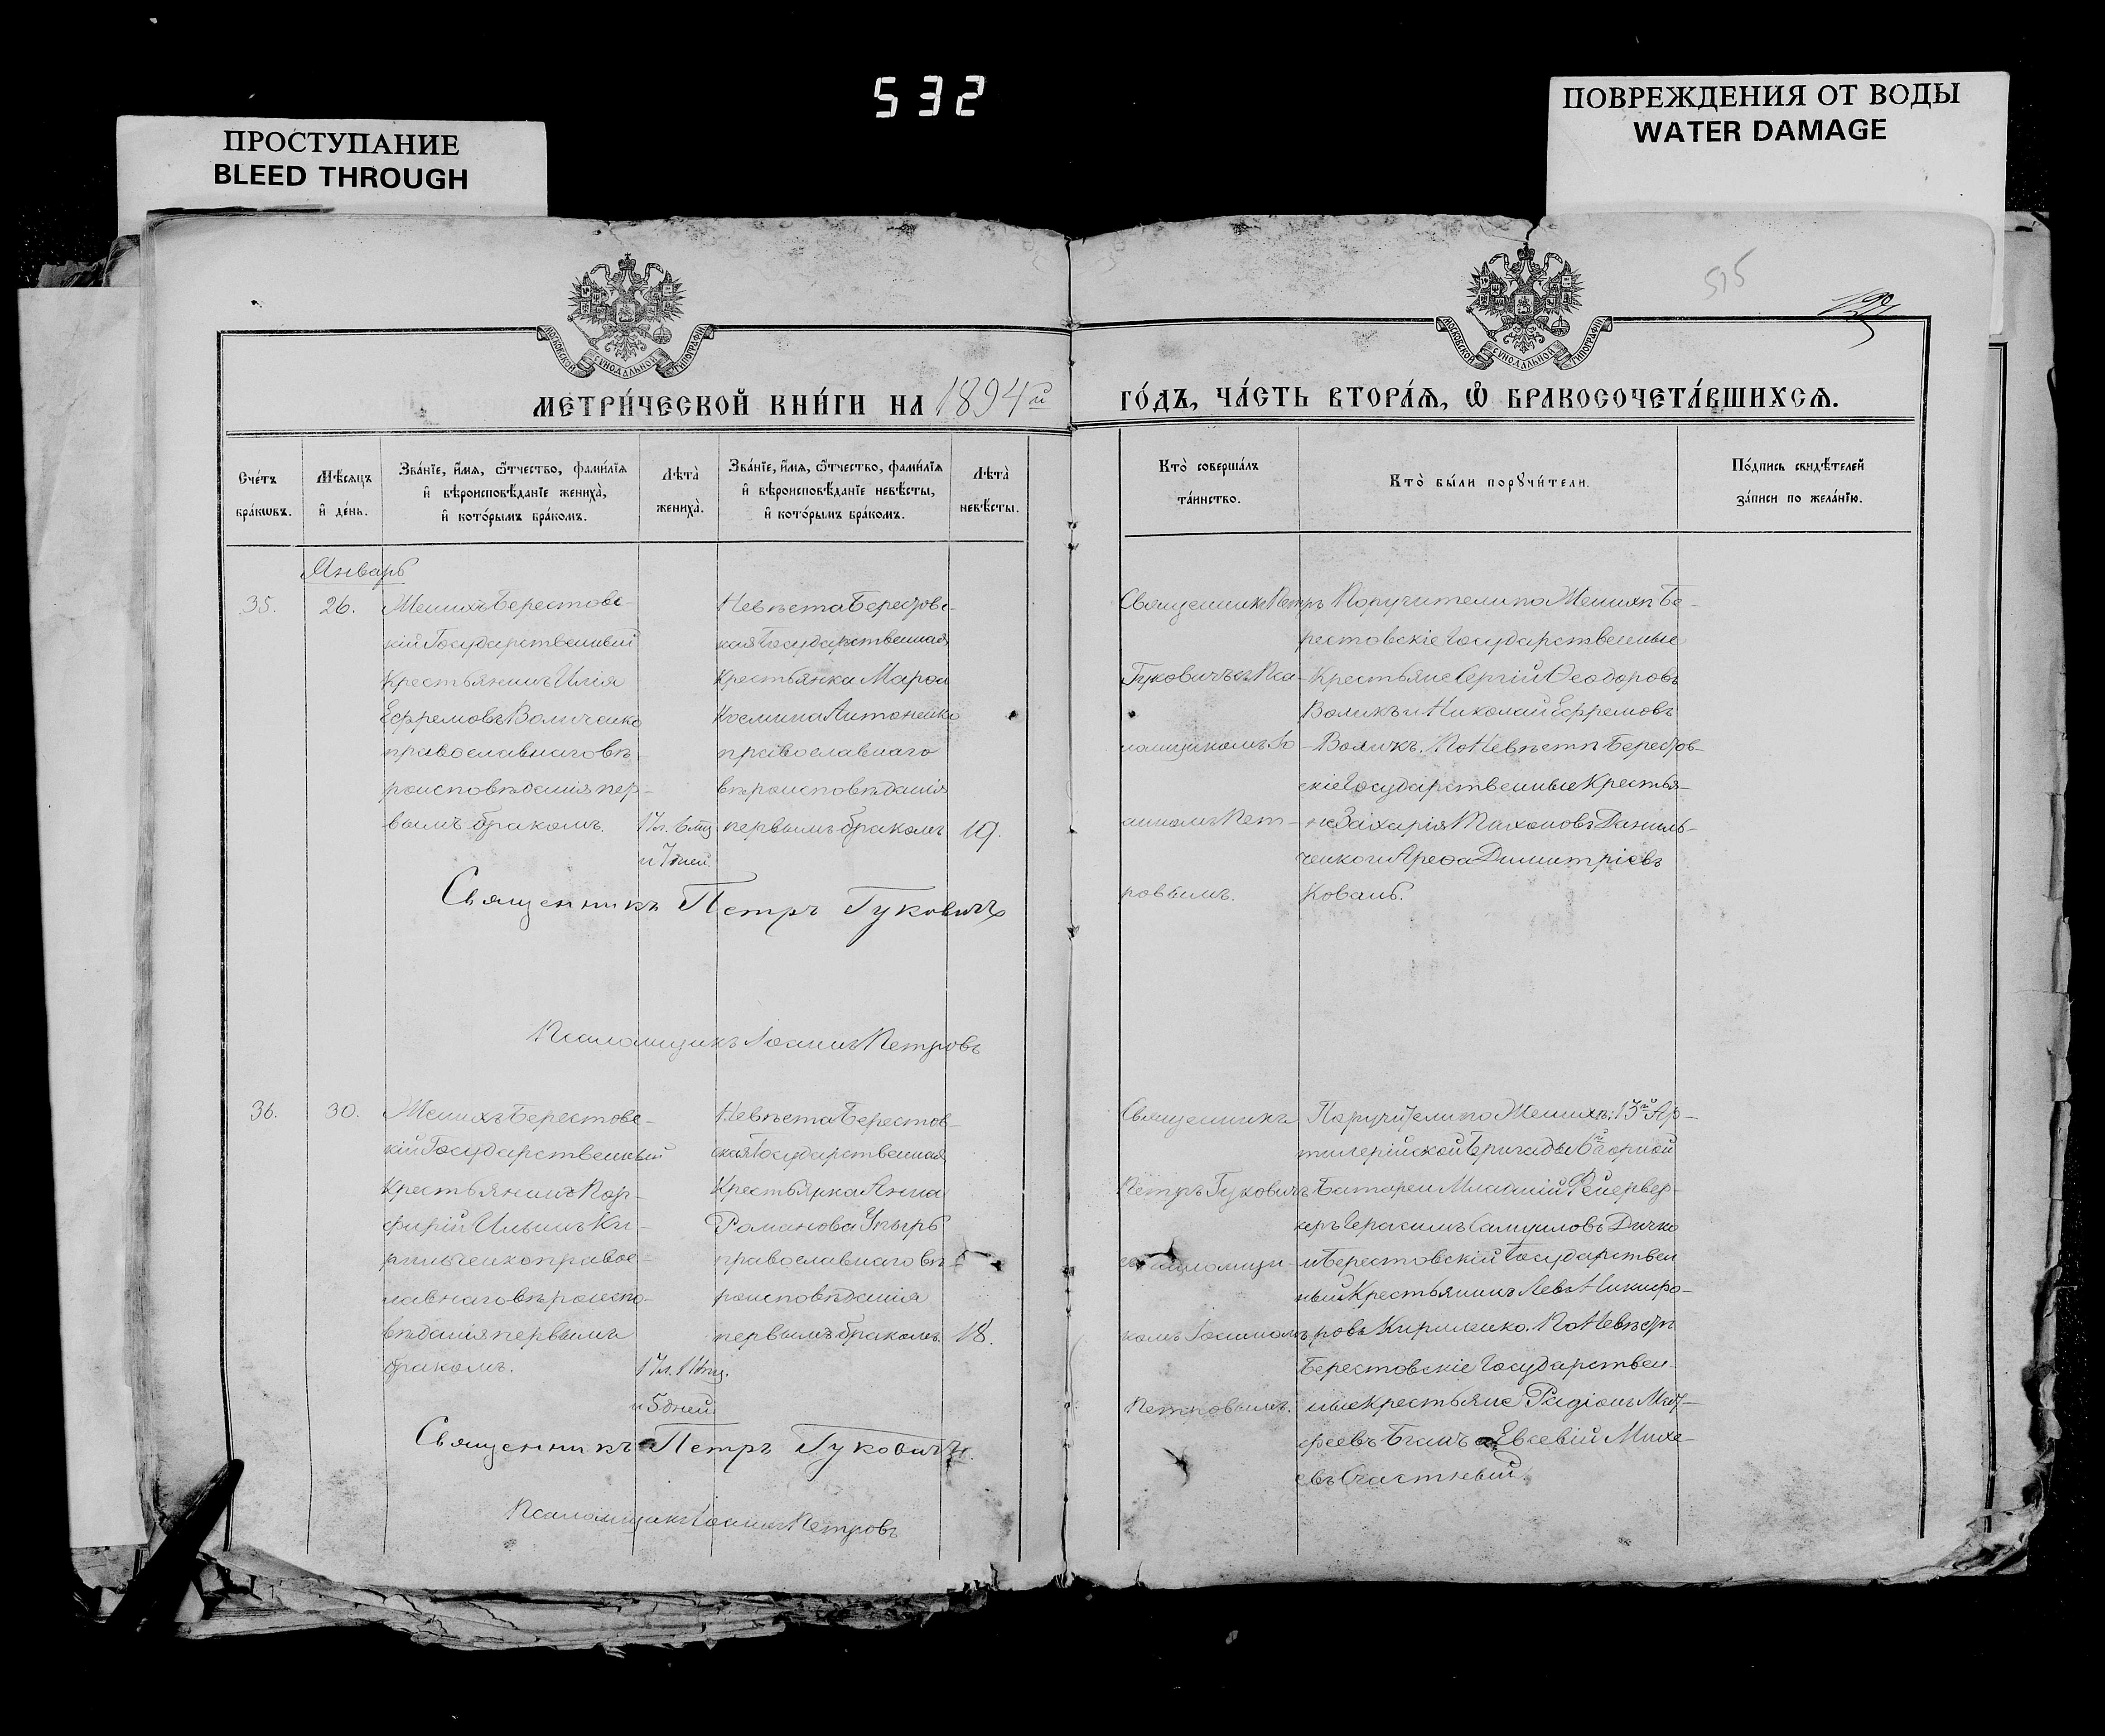 532
ПРОСТУПАНИЕ
BLEED THROUGH
ПОВРЕЖДЕНИЯ ОТ ВОДЫ
WATER DAMAGE
515
МОСКОВСКОЙ СѴНОДАЛЬНОЙ ТИПОГРАФІИ
МОСКОВСКОЙ СѴНОДАЛЬНОЙ ТИПОГРАФІИ
МЕТРИ́ЧЕСКОЙ КНИ́ГИ НА 1894й
ГО́ДЪ, ЧА́СТЬ ВТОРА́Ѧ, Ѽ БРАКОСОЧЕТА́ВШИХСѦ.
Сче́тъ
бра́кѡвъ.
Мѣ́сѧцъ
и҆ де́нь.
Зва́нїе, и҆́мѧ, ѻ҆́тчество, фами́лїѧ
и҆ вѣроисповѣ́данїе жениха̀,
и҆ кото́рымъ бра́комъ.
Лѣта̀
жениха̀.
Зва́нїе, и҆́мѧ, ѻ҆́тчество, фами́лїѧ
и҆ вѣроисповѣ́данїе невѣ́сты,
и҆ кото́рымъ бра́комъ.
Лѣта̀
невѣ́сты.
Кто̀ соверша́лъ
та́инство.
Кто̀ бы́ли порꙋчи́тели.
По́дпись свидѣ́телей
за́писи по жела́нїю.
Январь
35.
26.
Женихъ Берестовс-
кій Государственный
Крестьянинъ Илія
Ефремовъ Величенко
православнаго вѣ-
роисповѣданія пер-
вымъ бракомъ.
17 л. 6 мц
и 7 дней.
Невѣста Берестовс-
кая Государственная
Крестьянка Марѳа
Космина Антоненко
православнаго
вѣроисповѣданія
первымъ бракомъ
19.
Священникъ Петръ
Гуковичъ съ Пса-
ломщикомъ Іо-
анномъ Пет-
ровымъ.
Поручители по Женихѣ Бе-
рестовскіе Государственные
Крестьяне Сергій Ѳеодоровъ
Воликъ и Николай Ефремовъ
Воликъ. По Невѣстѣ Берестов-
скіе Государственные Крестья-
не Захарія Тихоновъ Даниль-
ченко и Арефа Димитріевъ
Коваль.
Священникъ Петръ Гуковичъ
Псаломщикъ Іоаннъ Петровъ
36.
30.
Женихъ Берестовс-
кій Государственный
Крестьянинъ Пор-
фирій Ильинъ Ки-
рильченко правос-
лавнаго вѣроиспо-
вѣданія первымъ
бракомъ.
17 л. 11 мц.
и 5 дней
Невѣста Берестов-
ская Государственная
Крестьянка Анна
Романова Упырь
православнаго вѣ-
роисповѣданія
первымъ бракомъ
18.
Священникъ
Петръ Гуковичъ
съ Псаломщи-
комъ Іоанномъ
Петровымъ.
Поручители по Женихѣ: 13й Ар-
тилерійской Бригады 6й горной
Батареи Младшій Фейервер-
керъ Герасимъ Самуиловъ Дичко
и Берестовскій Государствен
ный Крестьянинъ Левъ Никифо-
ровъ Кириленко. По Невѣстѣ
Берестовскіе Государствен-
ные Крестьяне Радіонъ Мат-
феевъ Баганъ и Евсевій Михе-
евъ Счастный.
Священникъ Петръ Гуковичъ
Псаломщикъ Іоаннъ Петровъ